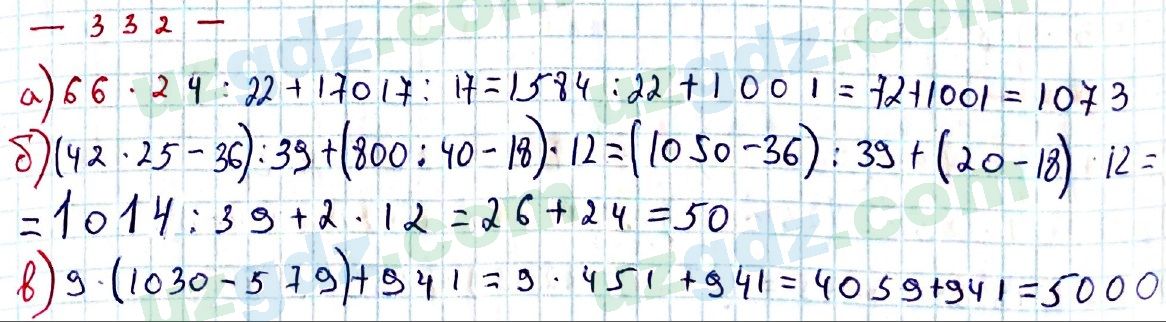 — 332 —
а) 66 · 24 : 22 + 17017 : 17 = 1584 : 22 + 1001 = 72 + 1001 = 1073
б) (42 · 25 - 36) : 39 + (800 : 40 - 18) · 12 = (1050 - 36) : 39 + (20 - 18) · 12 =
= 1014 : 39 + 2 · 12 = 26 + 24 = 50
в) 9 · (1030 - 579) + 941 = 9 · 451 + 941 = 4059 + 941 = 5000
uzgdz.com
uzgdz.com
uzgdz.com
uzgdz.com